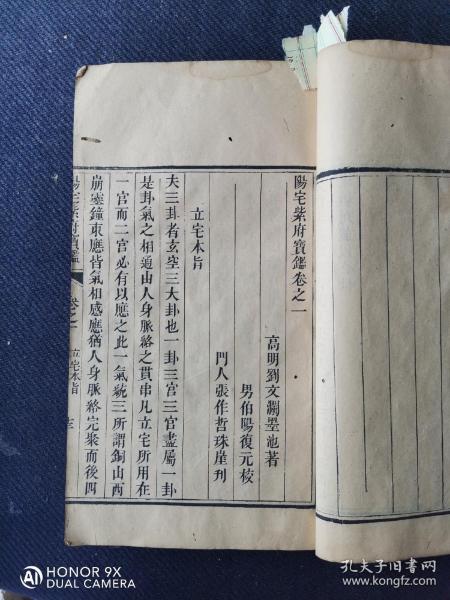 陽宅紫府寶鑑卷之一
高明劉文瀾墨池著
男伯陽復元校
門人張作哲珠崖刋
立宅本旨
夫三卦者玄空三大卦也一卦三宫三官盡屬一卦
是卦氣之相通由人身脈絡之貫串凡立宅所用在
一官而二官必有以應之此一氣統三所謂銅山西
崩靈鐘東應皆氣相感應猶人身脈絡完聚而後四
陽宅紫府寶鑑
卷之一
立宅本旨
HONOR 9X
AI DUAL CAMERA
孔夫子旧书网
www.kongfz.com